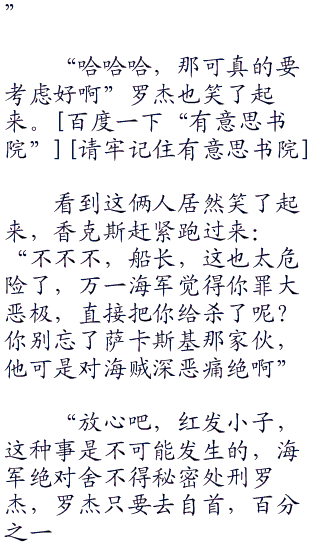 ”
“哈哈哈，那可真的要
考虑好啊”罗杰也笑了起
来。[百度一下“有意思书
院”][请牢记住有意思书院]
看到这俩人居然笑了起
来，香克斯赶紧跑过来：
“不不不，船长，这也太危
险了，万一海军觉得你罪大
恶极，直接把你给杀了呢？
你别忘了萨卡斯基那家伙，
他可是对海贼深恶痛绝啊”
“放心吧，红发小子，
这种事是不可能发生的，海
军绝对舍不得秘密处刑罗
杰，罗杰只要去自首，百分
之一